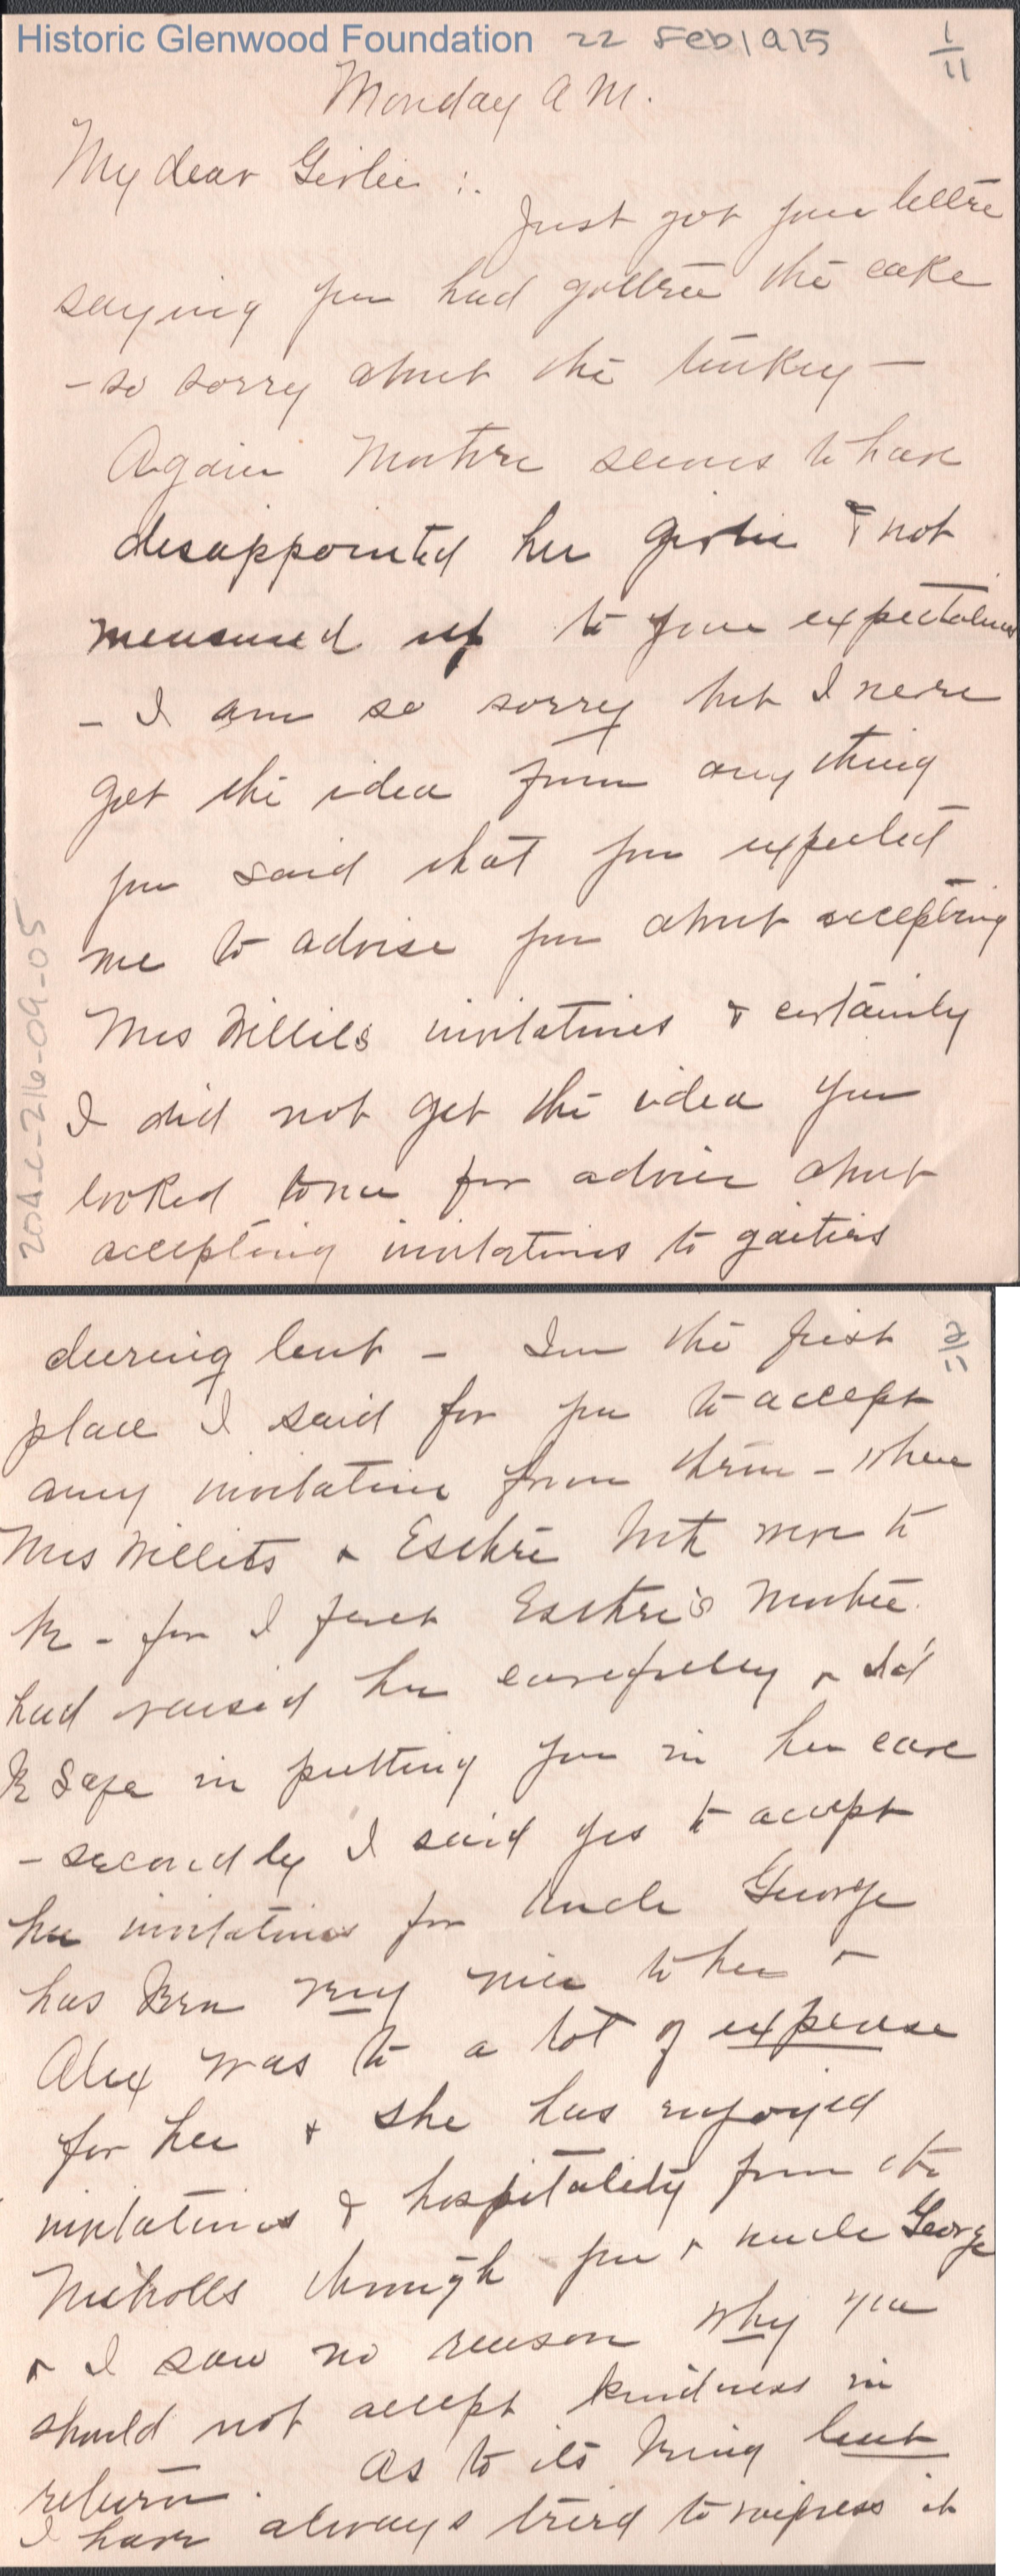 Historic Glenwood Foundation 22 Feb 1915
1/11
Monday A M.
My dear Girlie :.
Just got your letter
saying you had gotten the cake
- so sorry about the turkey -
Again Mother seems to have
disappointed her girlie & not
measured up to your expectations
- I am so sorry but I never
got the idea from any thing
you said that you expected
me to advise you about accepting
Mrs Willits invitations & certainly
I did not get the idea you
looked to me for advice about
accepting invitations to gaities
204-c-216-09-05
2/11
during lent - In the first
place I said for you to accept
any invitation from them - where
Mrs Willits & Esther both were to
be - for I felt Esther's Mother
had raised her carefully & I'd
be safe in putting you in her care
- secondly I said yes to accept
her invitations for Uncle George
has been very nice to her &
Alex was to a lot of expense
for her & she has enjoyed
invitations & hospitality from the
Nicholls through you & uncle George
& I saw no reason why you
should not accept kindness in
return. As to its being lent
I have always tried to impress it